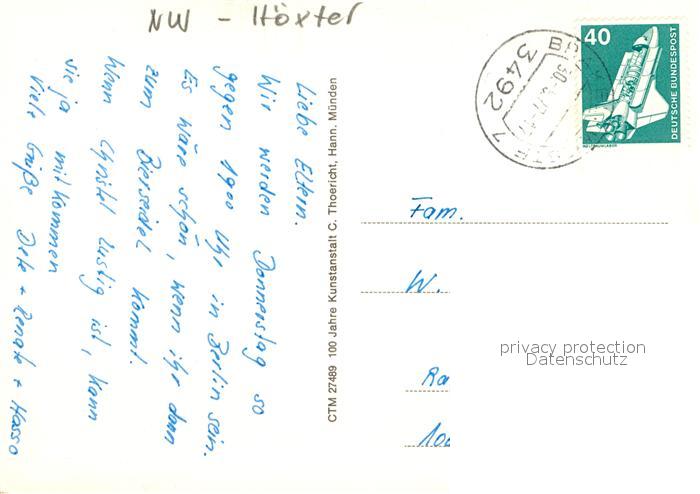 NW - Höxter
Liebe Eltern.
Wir werden Donnerstag so
gegen 19⁰⁰ Uhr in Berlin sein.
Es wäre schön, wenn ihr dann
zum Bierseidel kommt.
Wenn Christel lustig ist, kann
sie ja mitkommen
Viele Grüße Dete + Renate + Hasso
CTM 27489 100 Jahre Kunstanstalt C. Thoericht, Hann. Münden
3492
40
DEUTSCHE BUNDESPOST
WELTRAUMLABOR
Fam.
W.
privacy protection
Datenschutz
Ra